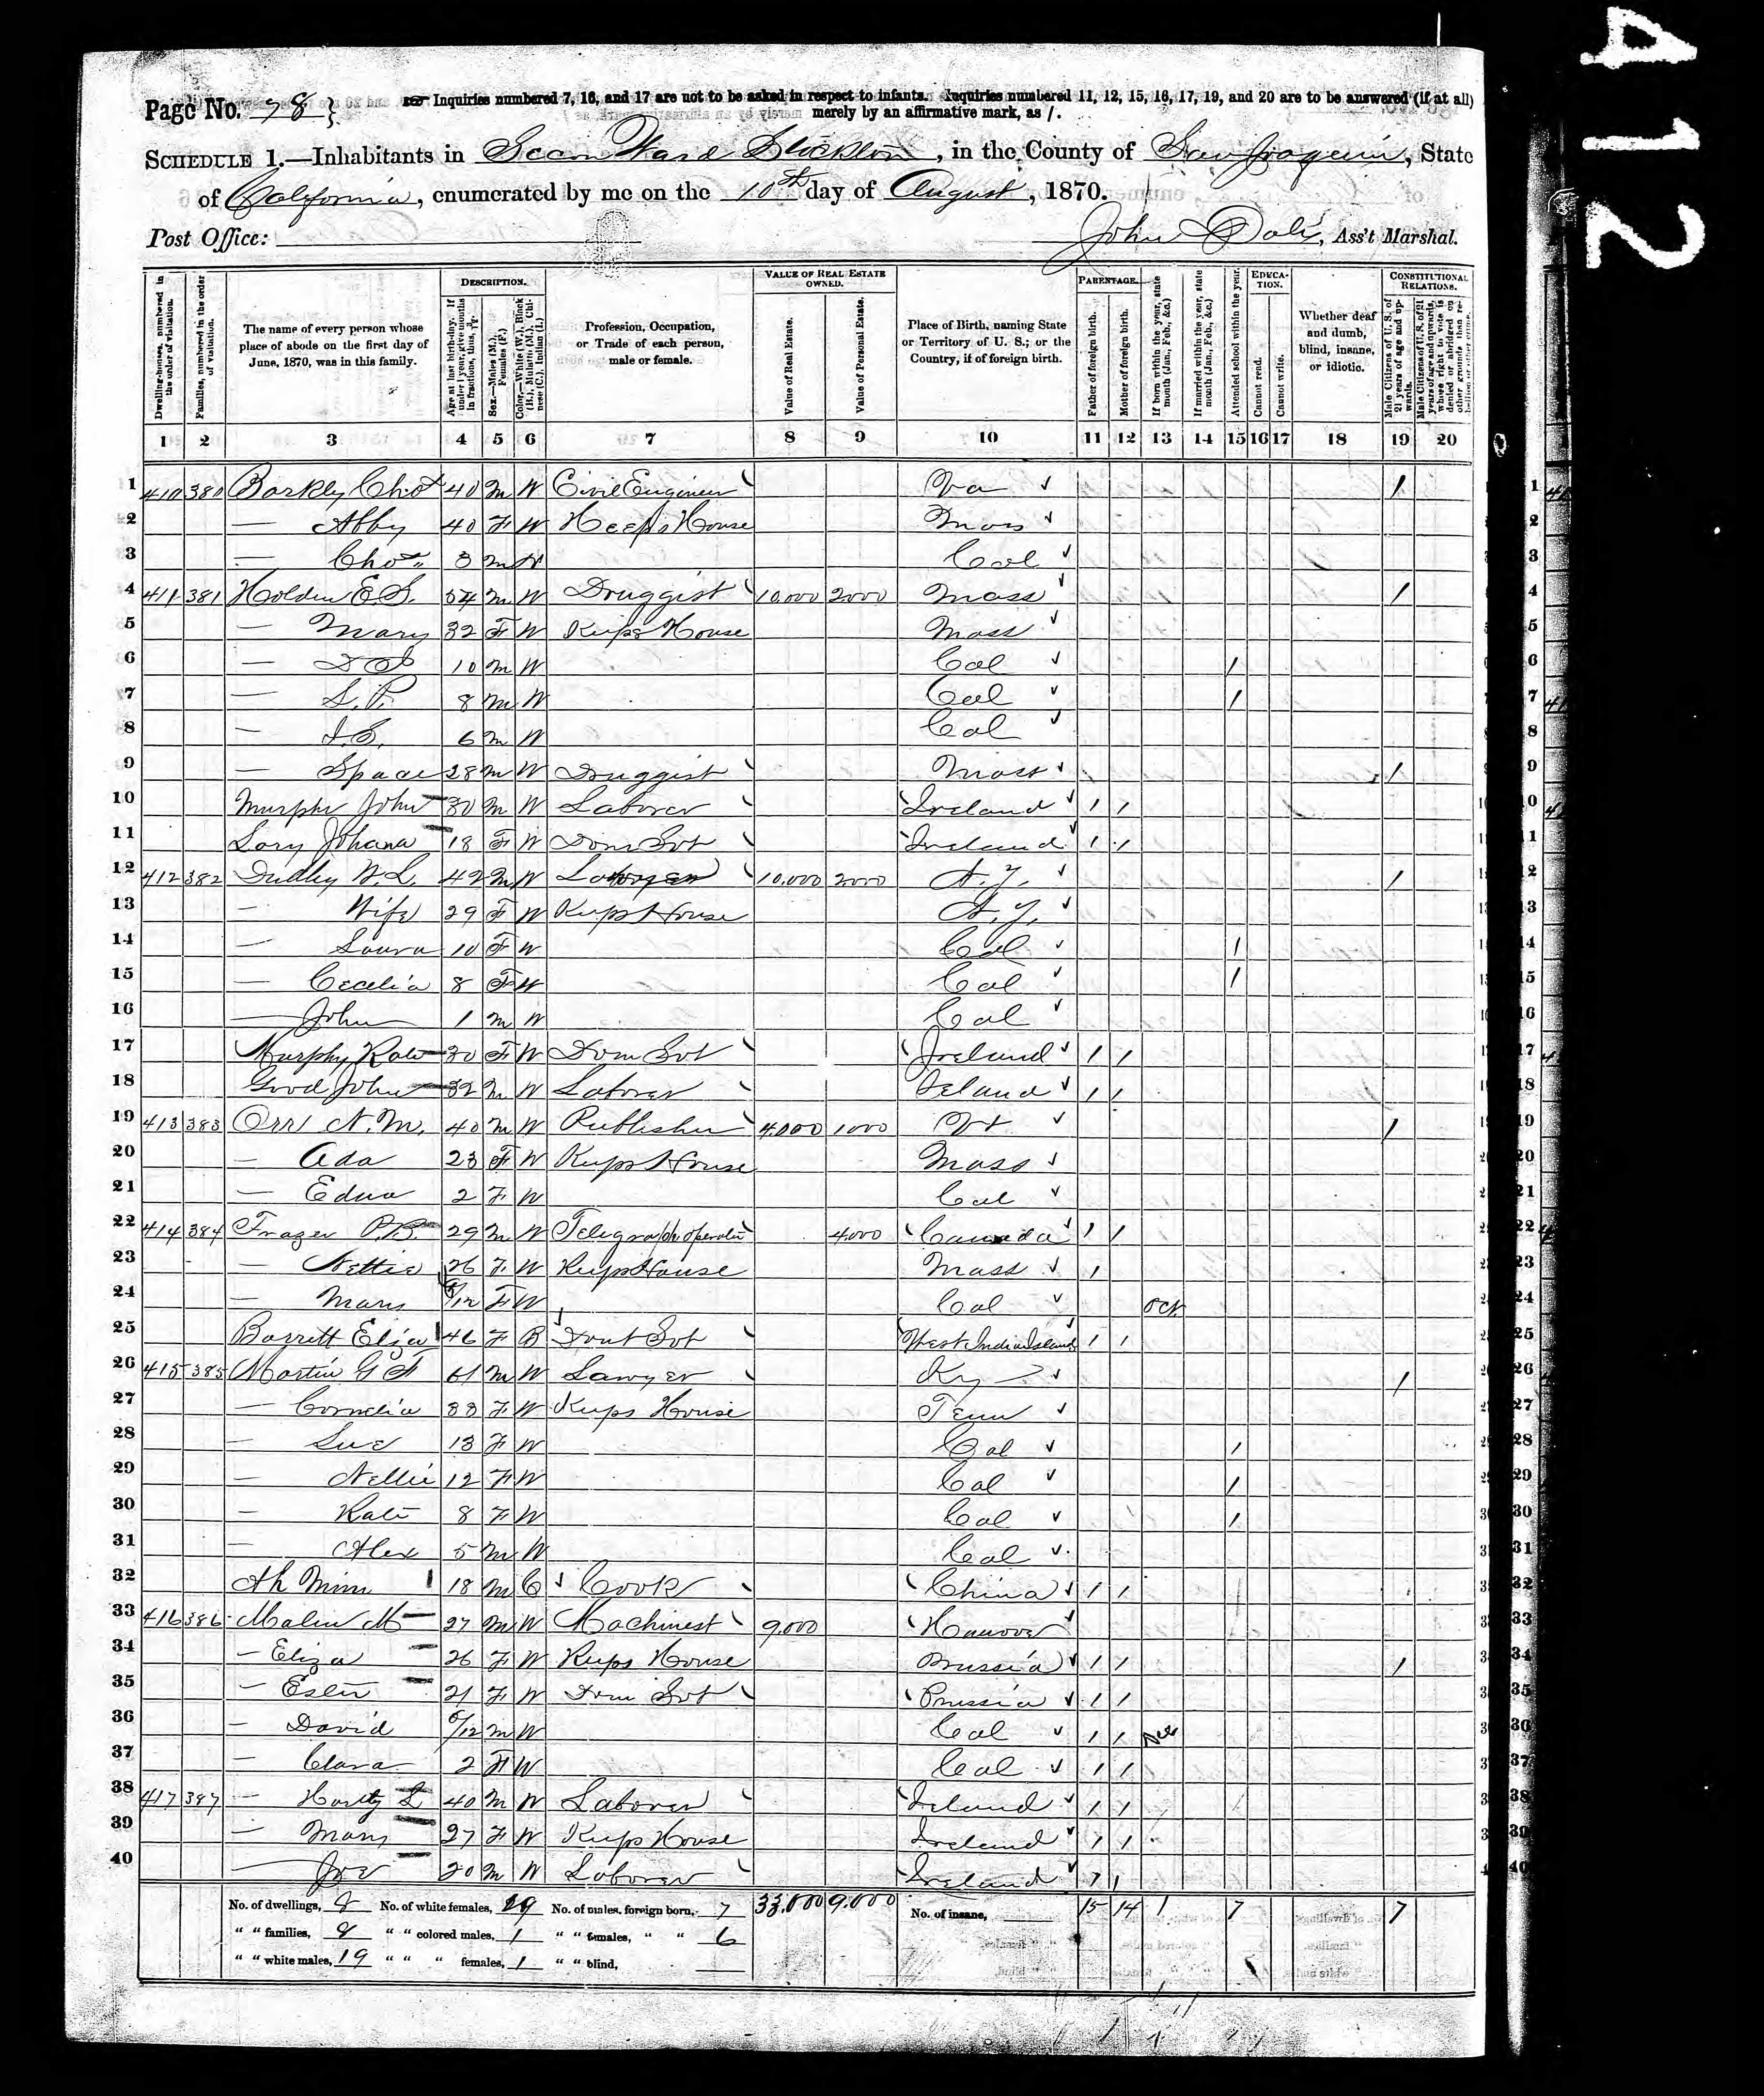 Page No. 78 } Inquiries numbered 7, 16, and 17 are not to be asked in respect to infants. Inquiries numbered 11, 12, 15, 16, 17, 19, and 20 are to be answered (if at all)
merely by an affirmative mark, as /.
SCHEDULE 1.—Inhabitants in Secon Ward Stockton, in the County of San Joaquin, State
of California, enumerated by me on the 10th day of August, 1870.
Post Office: John, Ass't Marshal.
412
DESCRIPTION. VALUE OF REAL ESTATE OWNED. PARENTAGE. EDUCATION. CONSTITUTIONAL RELATIONS.
Dwelling-houses, numbered in the order of visitation.
Families, numbered in the order of visitation.
The name of every person whose place of abode on the first day of June, 1870, was in this family.
Age at last birth-day. If under 1 year, give months in fractions, thus,
Sex.—Males (M.), Females (F.)
Color.—White (W.), Black (B.), Mulatto (M.), Chinese (C.), Indian (I.)
Profession, Occupation, or Trade of each person, male or female.
Value of Real Estate.
Value of Personal Estate.
Place of Birth, naming State or Territory of U. S.; or the Country, if of foreign birth.
Father of foreign birth.
Mother of foreign birth.
If born within the year, state month (Jan., Feb., &c.)
If married within the year, state month (Jan., Feb., &c.)
Attended school within the year.
Cannot read.
Cannot write.
Whether deaf and dumb, blind, insane, or idiotic.
Male Citizens of U. S. of 21 years of age and upwards.
Male Citizens of U. S. of 21 years of age and upwards, whose right to vote is denied or abridged on other grounds than rebellion or other crime.
1 2 3 4 5 6 7 8 9 10 11 12 13 14 15 16 17 18 19 20
1 410 380 Barkley Chas 40 M W Civil Engineer Va /
2 — Abby 40 F W Keeps House Mass
3 — Chas 3 M W Cal
4 411 381 Holden E.S. 54 M W Druggist 10,000 2000 Mass /
5 — Mary 32 F W Keeps House Mass
6 — 10 M W Cal /
7 — S.P. 8 M W Cal /
8 — 6 M W Cal
9 — 28 M W Druggist Mass /
10 Murphy John 30 M W Laborer Ireland / /
11 Johana 18 F W Dom Svt Ireland / /
12 412 382 Dudley W.L. 42 M W Lawyer 10,000 2000 N.Y. /
13 — Wife 29 F W Keeps House N.Y.
14 — Laura 10 F W Cal /
15 — Cecelia 8 F W Cal /
16 — John 1 M W Cal
17 Murphy Kate 30 F W Dom Svt Ireland / /
18 Good John 32 M W Laborer Ireland / /
19 413 383 Orr N.M. 40 M W Publisher 4,000 1000 Vt /
20 — Ada 23 F W Keeps House Mass
21 — Edna 2 F W Cal
22 414 384 Frazer P.B. 29 M W Telegraph operator 4000 Canada / /
23 — Nettie 26 F W Keeps House Mass /
24 — Mary /12 F W Cal Oct.
25 Barrett Eliza 46 F B Domt Svt West India Islands / /
26 415 385 Martin G F 61 M W Lawyer Ky /
27 — Cornelia 38 F W Keeps House Tenn
28 — Sue 13 F W Cal /
29 — Nellie 12 F W Cal /
30 — Kate 8 F W Cal /
31 — Alex 5 M W Cal
32 Ah Mim 18 M C Cook China / /
33 416 386 M 27 M W Machinest 9,000 Hanover
34 — Eliza 26 F W Keeps House Prussia / / /
35 — Ester 21 F W Dom Svt Prussia / /
36 — David /12 M W Cal / /
37 — Clara 2 F W Cal / /
38 417 387 — 40 M W Laborer Ireland / /
39 — Mary 27 F W Keeps House Ireland / /
40 — Joe 20 M W Laborer Ireland / /
No. of dwellings, 8 No. of white females, 19 No. of males, foreign born, 7 33,000 9,000 No. of insane, 15 14 1 7 7
" " families, 8 " " colored males, 1 " " females, " " 6
" " white males, 19 " " " females, 1 " " blind,